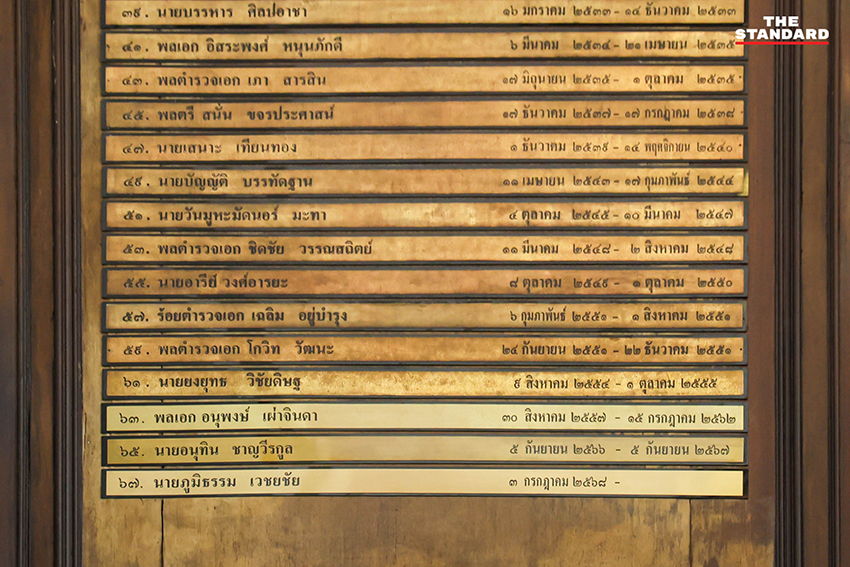 THE
STANDARD
๓๙. นายบรรหาร ศิลปอาชา ๑๖ มกราคม ๒๕๓๓ - ๑๔ ธันวาคม ๒๕๓๓
๔๑. พลเอก อิสระพงศ์ หนุนภักดี ๖ มีนาคม ๒๕๓๔ - ๒๑ เมษายน ๒๕๓๕
๔๓. พลตำรวจเอก เภา สารสิน ๑๗ มิถุนายน ๒๕๓๕ - ๑ ตุลาคม ๒๕๓๕
๔๕. พลตรี สนั่น ขจรประศาสน์ ๑๗ ธันวาคม ๒๕๓๗ - ๑๗ กรกฎาคม ๒๕๓๘
๔๗. นายเสนาะ เทียนทอง ๑ ธันวาคม ๒๕๓๙ - ๑๔ พฤศจิกายน ๒๕๔๐
๔๙. นายบัญญัติ บรรทัดฐาน ๑๑ เมษายน ๒๕๔๓ - ๑๗ กุมภาพันธ์ ๒๕๔๔
๕๑. นายวันมูหะมัดนอร์ มะทา ๔ ตุลาคม ๒๕๔๕ - ๑๐ มีนาคม ๒๕๔๗
๕๓. พลตำรวจเอก ชิดชัย วรรณสถิตย์ ๑๑ มีนาคม ๒๕๔๘ - ๒ สิงหาคม ๒๕๔๘
๕๕. นายอารีย์ วงศ์อารยะ ๘ ตุลาคม ๒๕๔๙ - ๑ ตุลาคม ๒๕๕๐
๕๗. ร้อยตำรวจเอก เฉลิม อยู่บำรุง ๖ กุมภาพันธ์ ๒๕๕๑ - ๑ สิงหาคม ๒๕๕๑
๕๙. พลตำรวจเอก โกวิท วัฒนะ ๒๔ กันยายน ๒๕๕๑ - ๒๒ ธันวาคม ๒๕๕๑
๖๑. นายยงยุทธ วิชัยดิษฐ ๙ สิงหาคม ๒๕๕๔ - ๑ ตุลาคม ๒๕๕๕
๖๓. พลเอก อนุพงษ์ เผ่าจินดา ๓๐ สิงหาคม ๒๕๕๗ - ๑๕ กรกฎาคม ๒๕๖๒
๖๕. นายอนุทิน ชาญวีรกูล ๕ กันยายน ๒๕๖๖ - ๕ กันยายน ๒๕๖๗
๖๗. นายภูมิธรรม เวชยชัย ๓ กรกฎาคม ๒๕๖๘ -